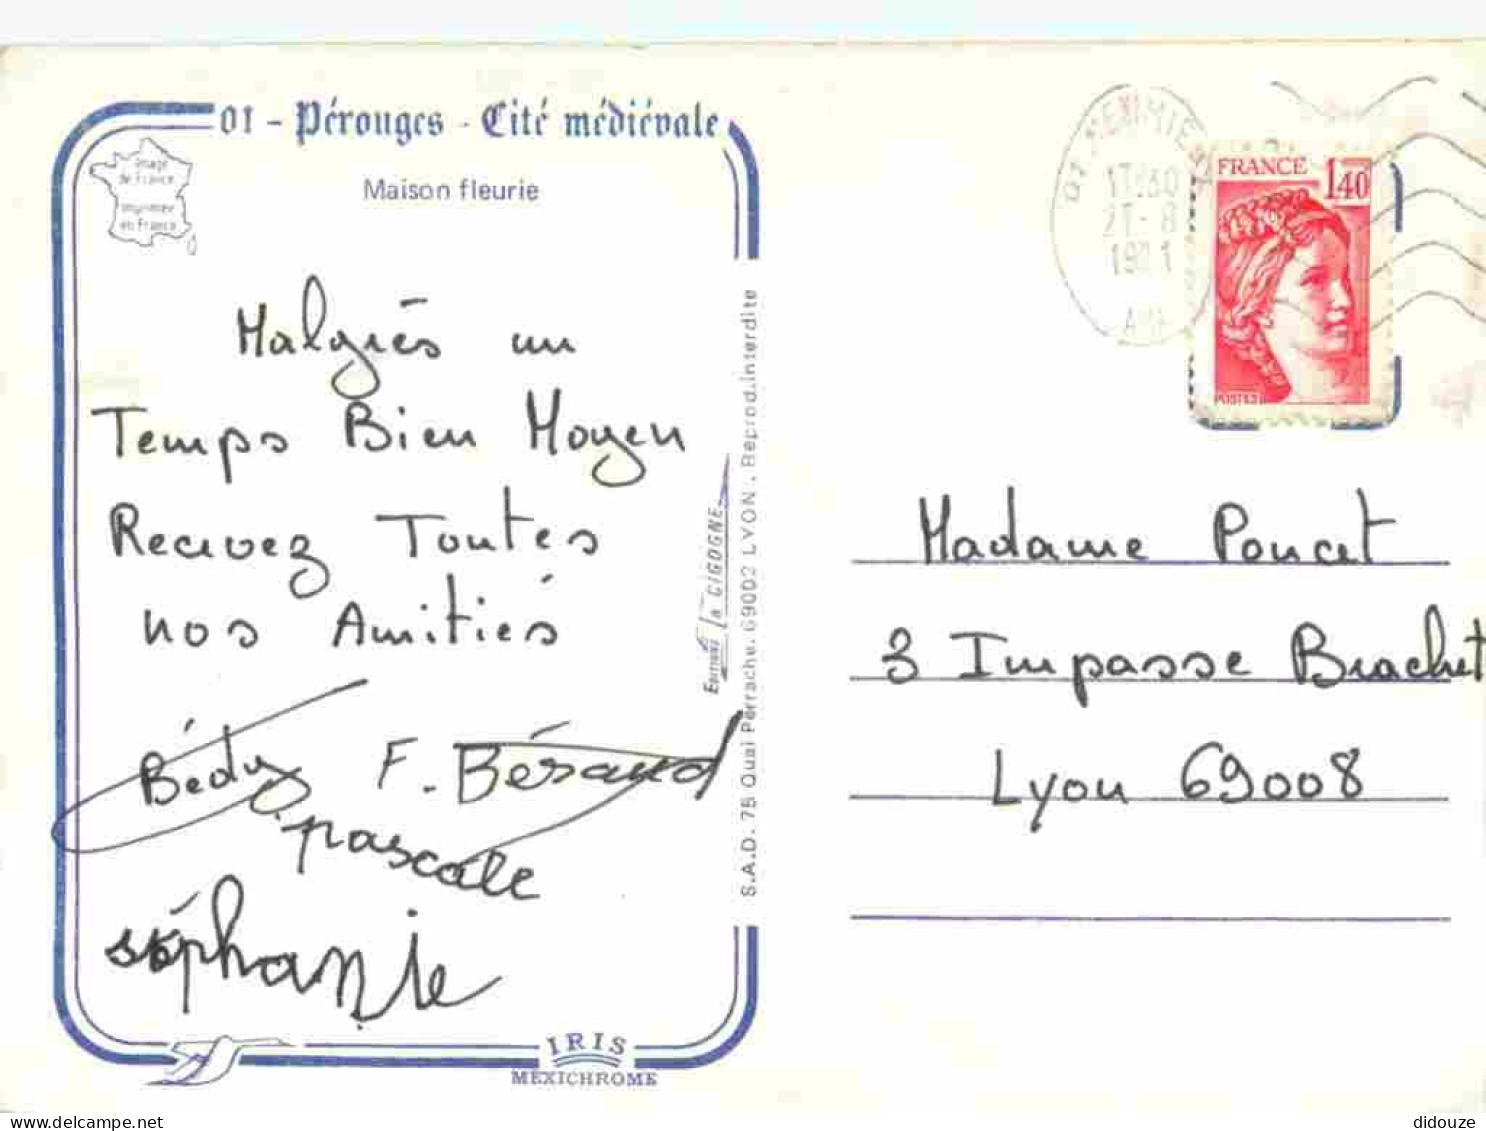 01 - Pérouges - Cité médiévale
Maison fleurie
Image
de France
imprimée
en France
Malgrés un
Temps Bien Moyen
Recevez Toutes
nos Amitiés
Bédy F. Béraud
pascale
stéphanie
EDITIONS la CIGOGNE
S.A.D. 75 Quai Perrache. 69002 LYON. Reprod. interdite
IRIS
MEXICHROME
01 MEXIMIEUX
17H30
21-8
19 1
AIN
FRANCE
1,40
POSTES
Madame Poncet
3 Impasse Brachet
Lyon 69008
didouze